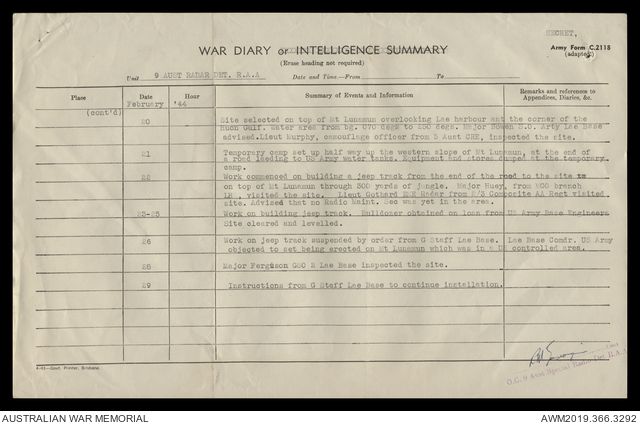 SECRET.
WAR DIARY or INTELLIGENCE SUMMARY
Army Form C.2118
(Erase heading not required)
(adapted)
Unit 9 AUST RADAR DET. R.A.A Date and Time—From To
Place Date Hour Summary of Events and Information Remarks and references to Appendices, Diaries, &c.
(cont'd) February '44
20 Site selected on top of Mt Lunamun overlooking Lae harbour at the corner of the
Huon Gulf. Water area from bg. 070 degs to 230 degs. Major Bowen S.O. Arty Lae Base
advised. Lieut Murphy, camouflage officer from 5 Aust CRE, inspected the site.
21 Temporary camp set up half way up the western slope of Mt Lunamun, at the end of
a road leading to US Army water tanks. Equipment and stores dumped at the temporary
camp.
22 Work commenced on building a jeep track from the end of the road to the site
on top of Mt Lunamun through 300 yards of jungle. Major Huey, from branch
visited the site. Lieut Gothard Radar 2/3 Composite AA Regt visited
site. Advised that no Radio Maint. Sec was yet in the area.
23-25 Work on building jeep track. Bulldozer obtained on loan from US Army Base Engineers
Site cleared and levelled.
26 Work on jeep track suspended by order from G Staff Lae Base. Lae Base Comdr. US Army
objected to set being erected on Mt Lunamun which was in a US controlled area.
28 Major Ferguson GSO 2 Lae Base inspected the site.
29 Instructions from G Staff Lae Base to continue installation.
O.C. 9 Aust Special Radar Det R.A.A.
Govt. Printer, Brisbane.
AUSTRALIAN WAR MEMORIAL
AWM2019.366.3292